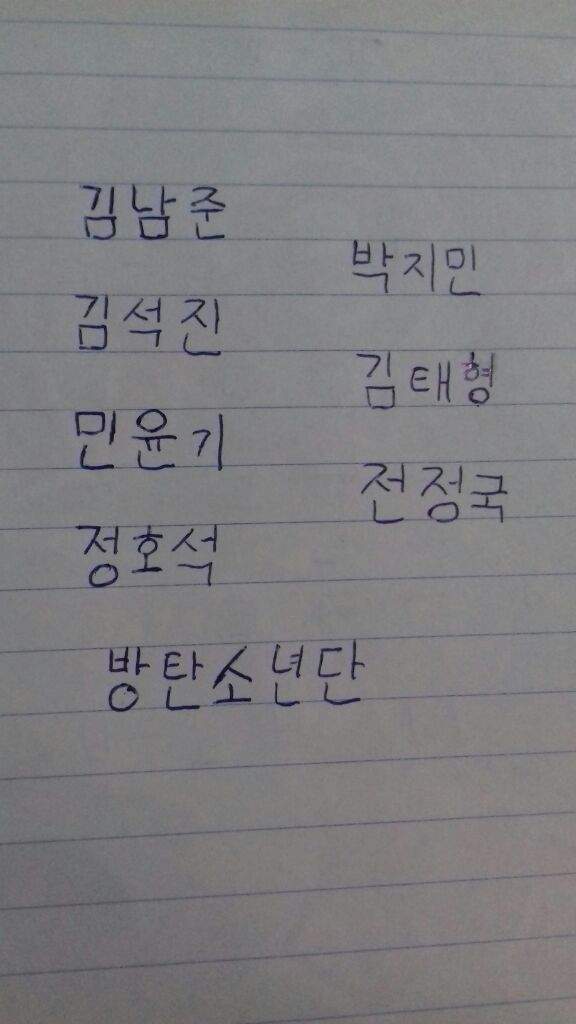 김남준
김석진
민윤기
정호석
박지민
김태형
전정국
방탄소년단